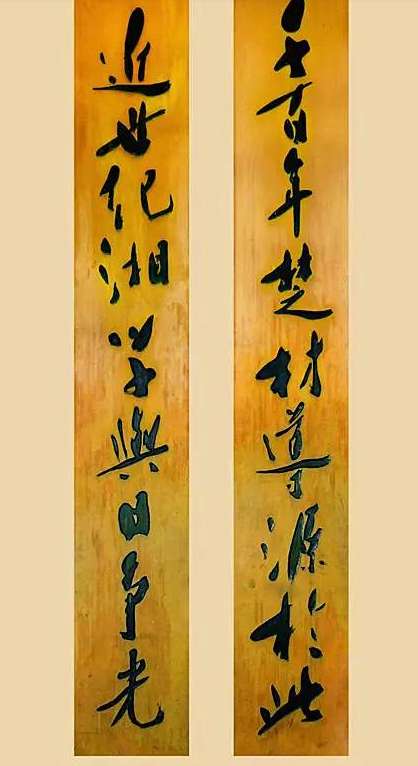 千百年楚材導源於此
近世纪湘学與日争光